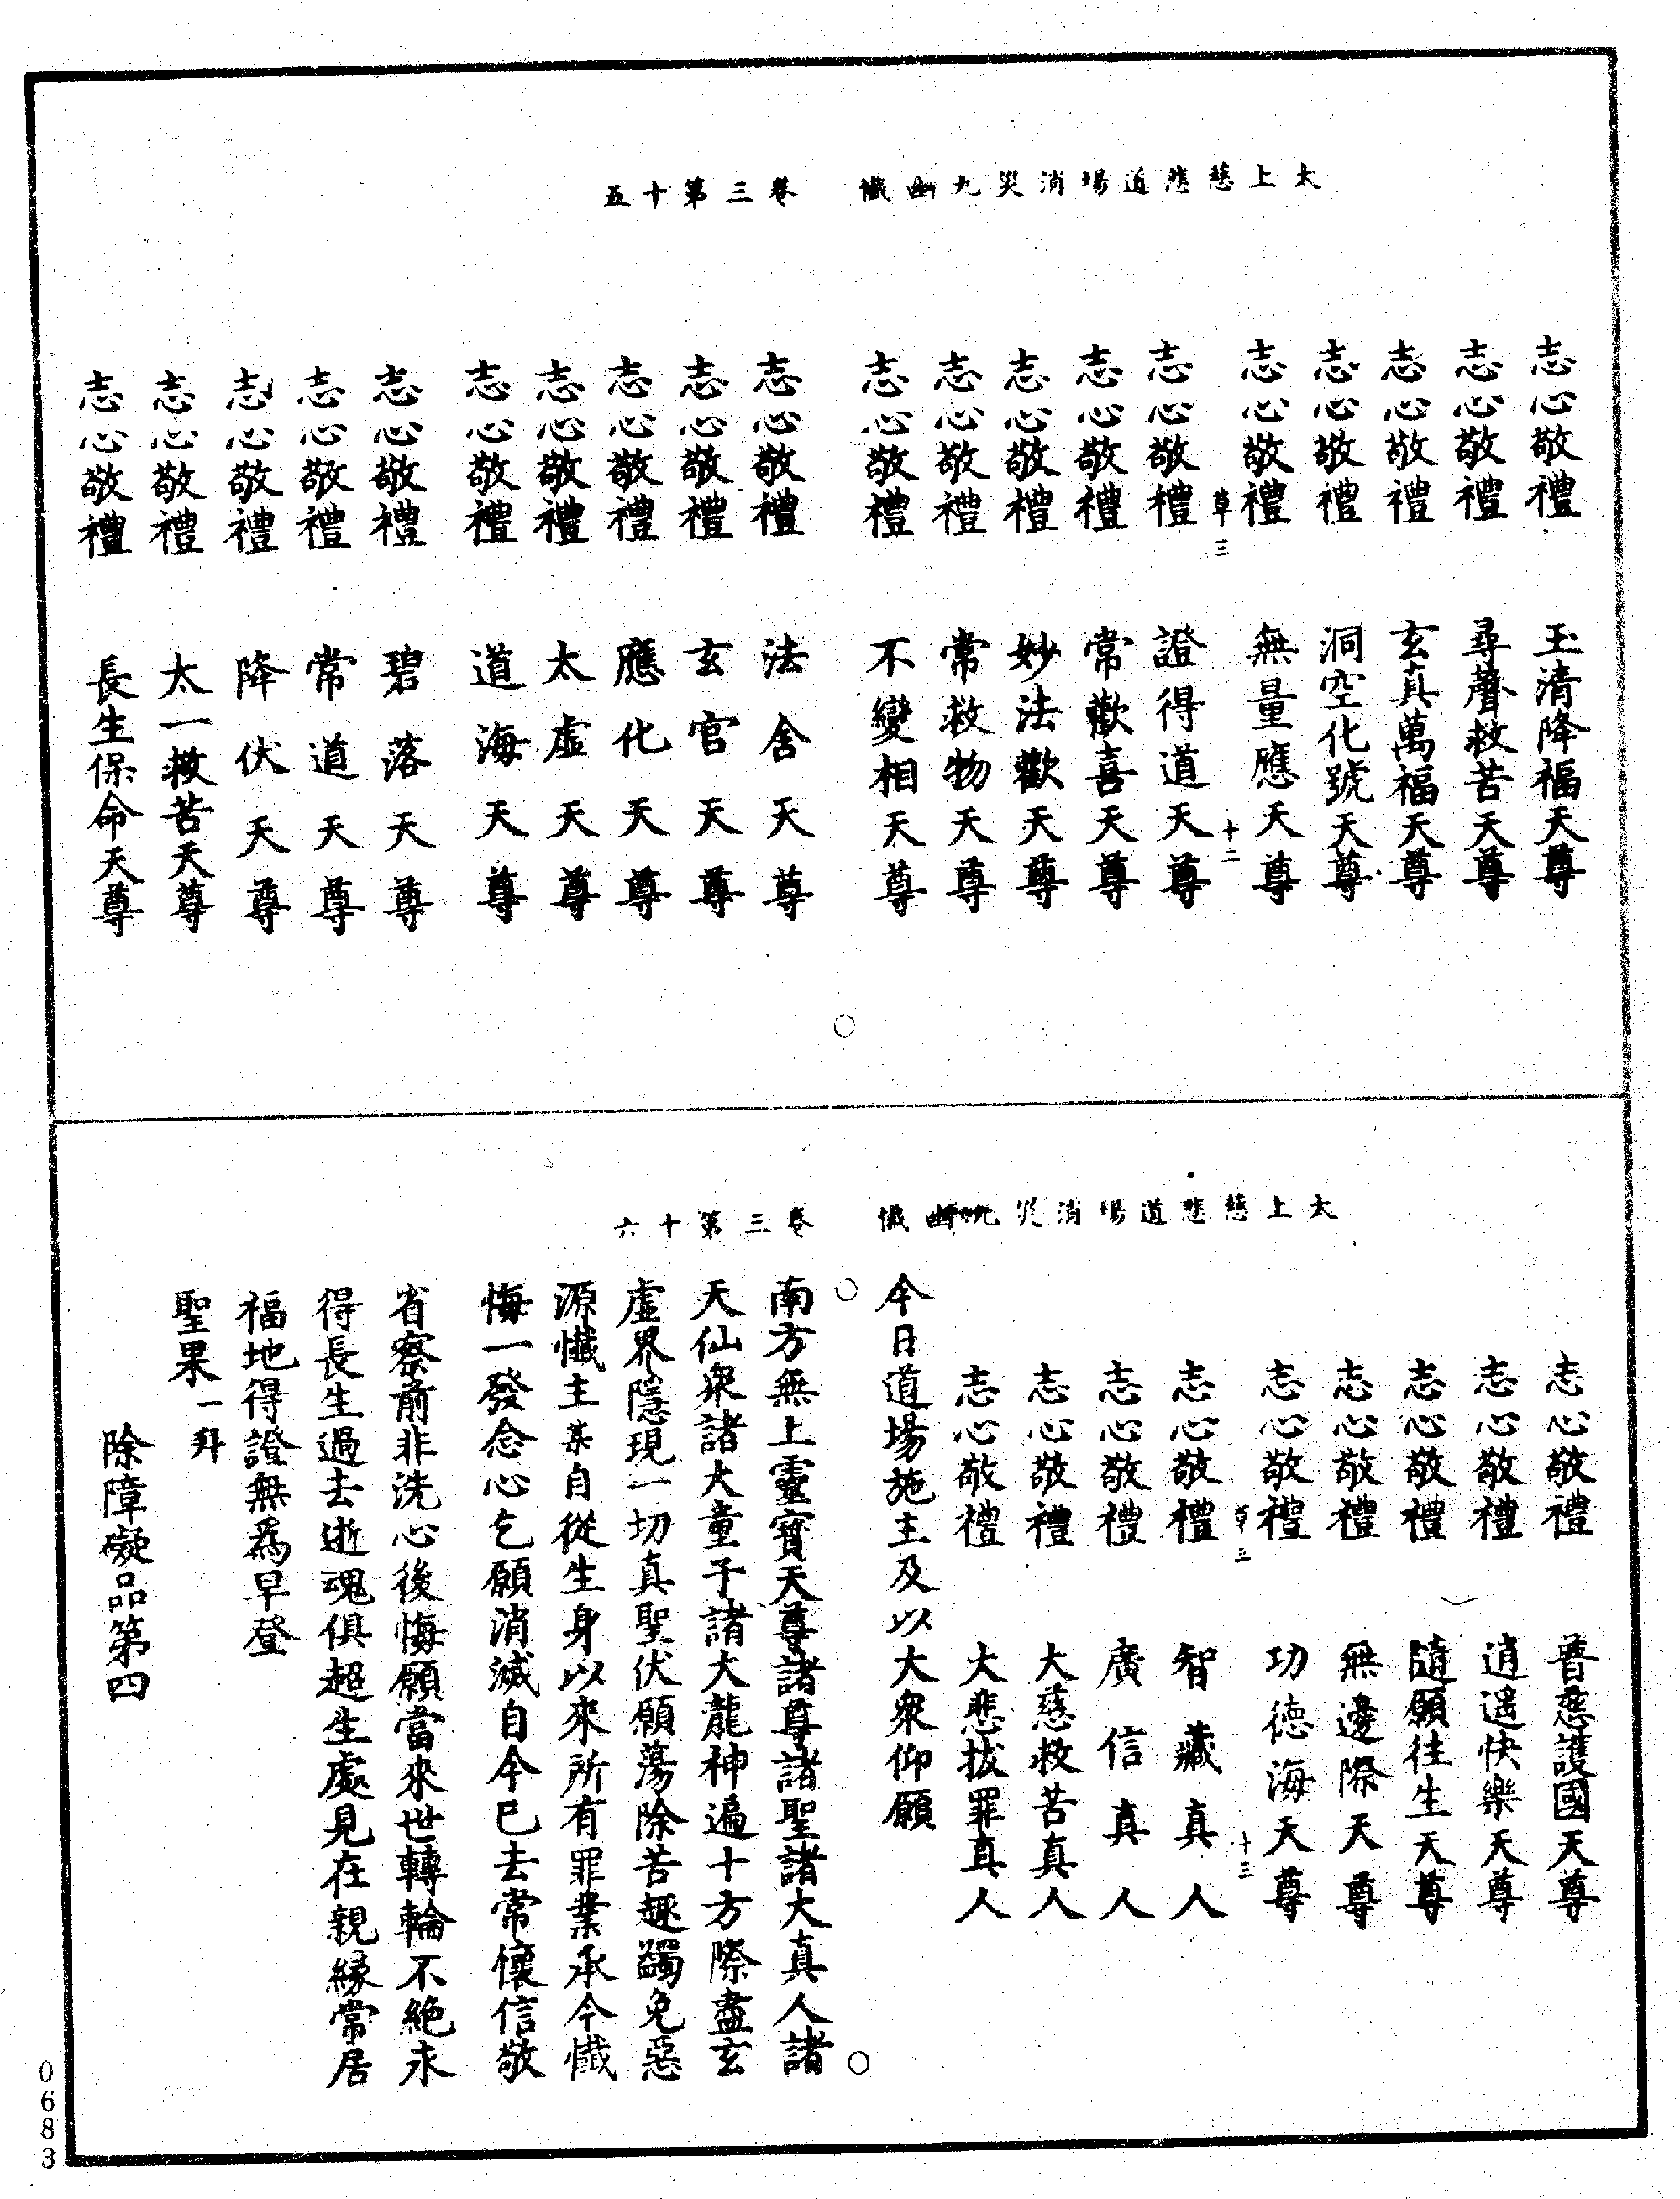 太上慈悲道場消災九幽懺　卷三第十五
志心敬禮　玉清降福天尊
志心敬禮　尋聲救苦天尊
志心敬禮　玄真萬福天尊
志心敬禮　洞空化號天尊
志心敬禮　無量應天尊
草三　十二
志心敬禮　證得道天尊
志心敬禮　常歡喜天尊
志心敬禮　妙法歡天尊
志心敬禮　常救物天尊
志心敬禮　不變相天尊
志心敬禮　法舍天尊
志心敬禮　玄官天尊
志心敬禮　應化天尊
志心敬禮　太虛天尊
志心敬禮　道海天尊
志心敬禮　碧落天尊
志心敬禮　常道天尊
志心敬禮　降伏天尊
志心敬禮　太一救苦天尊
志心敬禮　長生保命天尊
太上慈悲道場消災九幽懺　卷三第十六
志心敬禮　普慈護國天尊
志心敬禮　逍遥快樂天尊
志心敬禮　隨願往生天尊
志心敬禮　無邊際天尊
志心敬禮　功德海天尊
草三　十三
志心敬禮　智藏真人
志心敬禮　廣信真人
志心敬禮　大慈救苦真人
志心敬禮　大悲拔罪真人
今日道場施主及以大衆仰願
南方無上靈寳天尊諸尊諸聖諸大真人諸
天仙衆諸大童子諸大龍神遍十方際盡玄
虛界隱現一切真聖伏願蕩除苦趣蠲免惡
源懺主某自從生身以來所有罪業承今懺
悔一發念心乞願消滅自今已去常懷信敬
省察前非洗心後悔願當來世轉輪不絕永
得長生過去逝魂俱超生處見在親緣常居
福地得證無爲早登
聖果一拜
除障礙品第四
0683